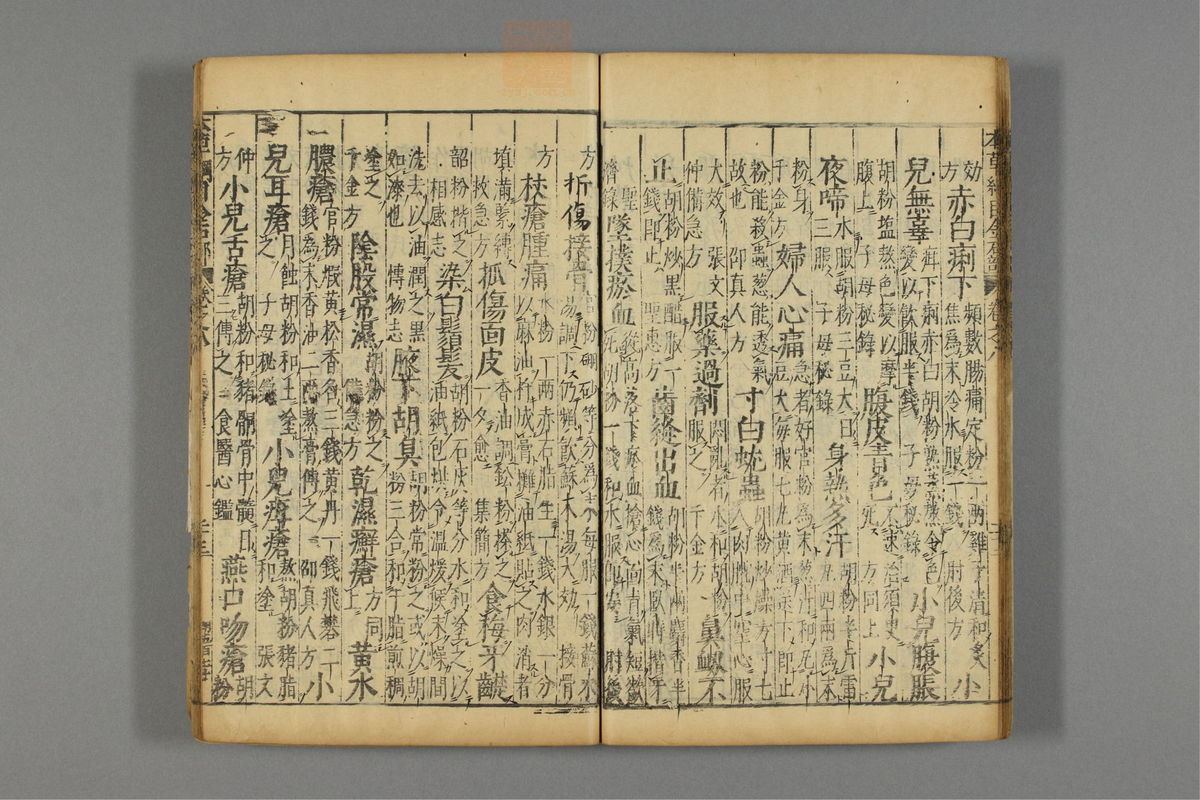 本草綱目金石部 卷之八
効方 赤白痢下 頻數腸痛定粉一兩雞子清和炙焦爲末冷水服一錢 肘後方 小
兒無辜疳下痢赤白胡粉熟蒸熬令色變以飲服半錢 子母秘錄 小兒腹脹
胡粉塩熬色變以摩腹上 子母秘錄 腹皮青色 不速治須臾死 方同上 小兒
夜啼 水服胡粉三豆大日三服 子母秘錄 身熱多汗 胡粉半斤雷丸四兩爲末
粉身 千金方 婦人心痛 急者好官粉爲末葱汁和丸小豆大每服七丸黃酒送下即止
粉能殺蟲葱能透氣故也 邵真人方 寸白蚘蟲 胡粉炒燥方寸七入肉臛中空心服
大效 張文仲備急方 服藥過劑 悶亂者水和胡粉服之 千金方 鼻衄不
止 胡粉炒黑醋服一錢即止 聖惠方 齒縫出血 胡粉半兩麝香半錢爲末臥時揩牙
聖濟錄 墜撲瘀血 從高落下瘀血搶心面青氣短欲死胡粉一錢和水服即安 肘後
方 折傷接骨 官粉硼砂等分爲末每服一錢蘇木湯調下仍頻飲蘇木湯大効 接骨
方 杖瘡腫痛 水粉一兩赤石脂生一錢水銀一分以麻油杵成膏攤油紙貼之肉消者
填滿緊縛 救急方 抓傷面皮 香油調鉛粉搽之一夕愈 集簡方 食梅牙齼
韶粉揩之 相感志 染白鬚髮 胡粉石灰等分水和塗之以油紙包烘令溫煖候未燥間
洗去以油潤之黑如漆也 博物志 腋下胡臭 胡粉常粉之或以胡粉三合和牛脂煎稠
塗之 千金方 陰股常濕 胡粉粉之 備急方 乾濕癬瘡 方同上 黃水
膿瘡 官粉煅黃松香各三錢黃丹一錢飛礬二錢爲末香油二兩熬膏傅之 邵真人方 小
兒耳瘡 月蝕胡粉和土塗之 子母秘錄 小兒疳瘡 熬胡粉豬脂和塗 張文
仲方 小兒舌瘡 胡粉和豬䯊骨中髓日三傅之 食醫心鑑 燕口吻瘡 胡粉
本草綱目金石部 卷之八